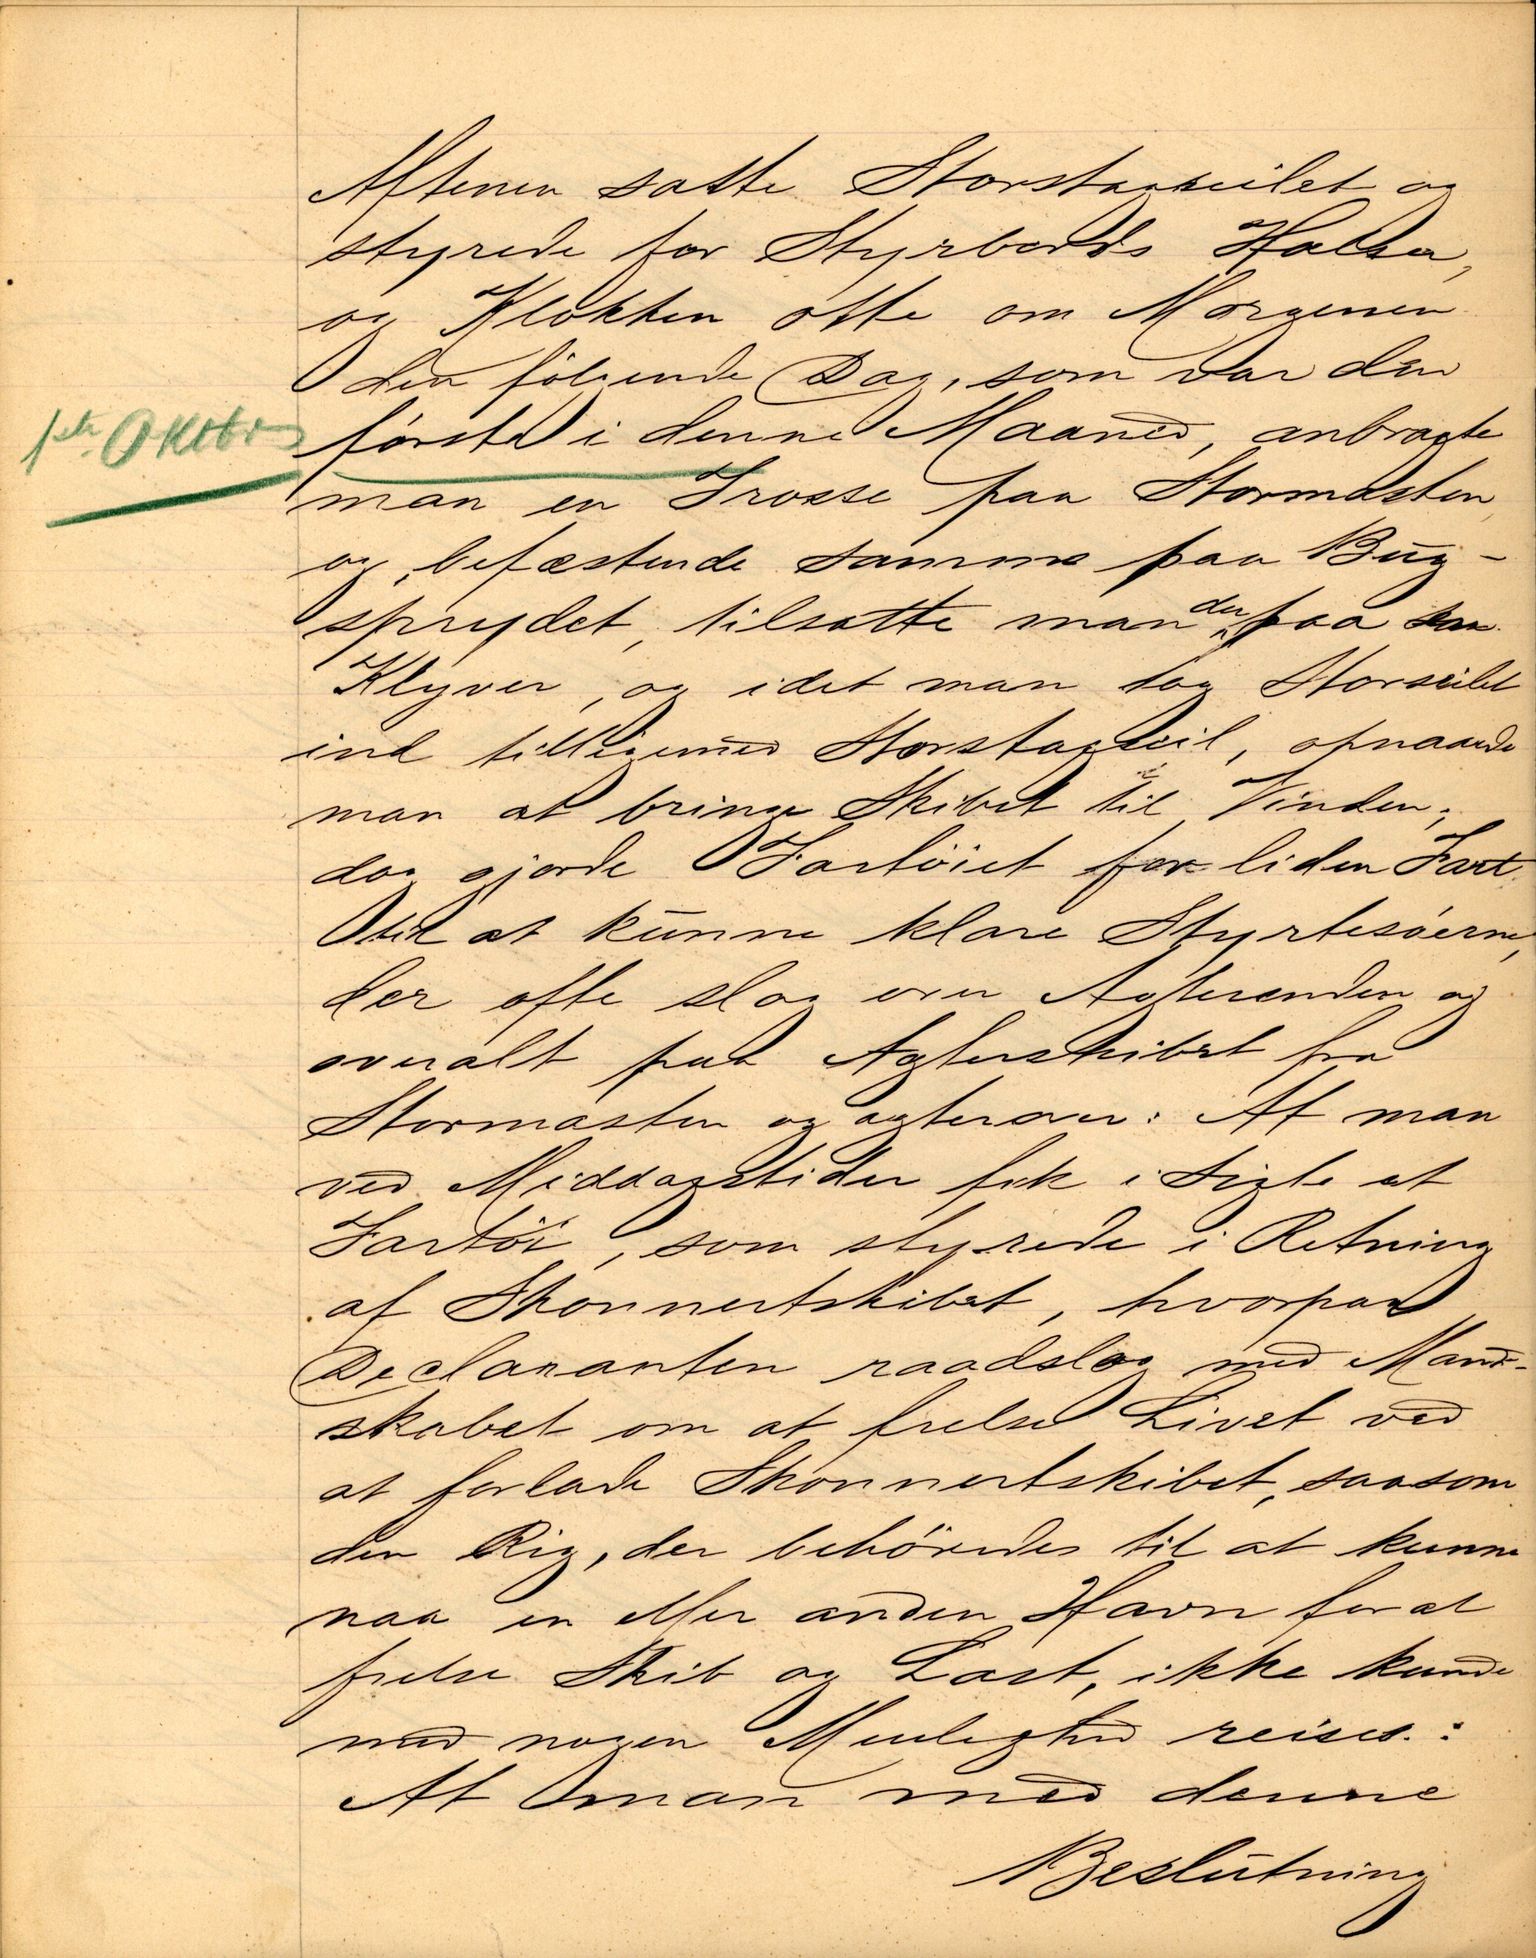 Aftenen satte Storstagseilet og
styrede for Styrbords Halser,
og Klokken otte om Morgenen
den følgende Dag, som var den
1ste Oktober
første i denne Maaned, anbragte
man en Trosse paa Stormasten,
og, befæstende samme paa Bug-
sprydet, tilsatte man der paa en
Klyver, og idet man tog Storseilet
ind tilligemed Storstagseil, opnaaede
man at bringe Skibet til Vinden;
dog gjorde Fartöiet for liden Fart
til at kunne klare Styrtesöerne,
der ofte slog over Agterenden og
overalt paa Agterskibet fra
Stormasten og agterover: At man
ved Middagstider fik i Sigte et
Fartöi, som styrede i Retning
af Skonnertskibet, hvorpaa
Declaranten raadslog med Mand-
skabet om at frelse Livet ved
at forlade Skonnertskibet, saasom
den Rig, der behövedes til at kunne
naa en eller anden Havn for at
frelse Skib og Last, ikke kunde
med nogen Muelighed reises.:
At man med denne
Beslutning